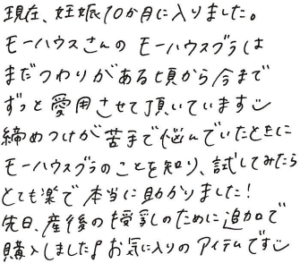 現在、妊娠10か月に入りました。
モーハウスさんの モーハウスブラは
まだつわりがある頃から今まで
ずっと愛用させて頂いています
締めつけが苦手で悩んでいたときに
モーハウスブラのことを知り、試してみたら
とても楽で本当に助かりました!
先日、産後の授乳のために追加で
購入しました♪お気に入りのアイテムです